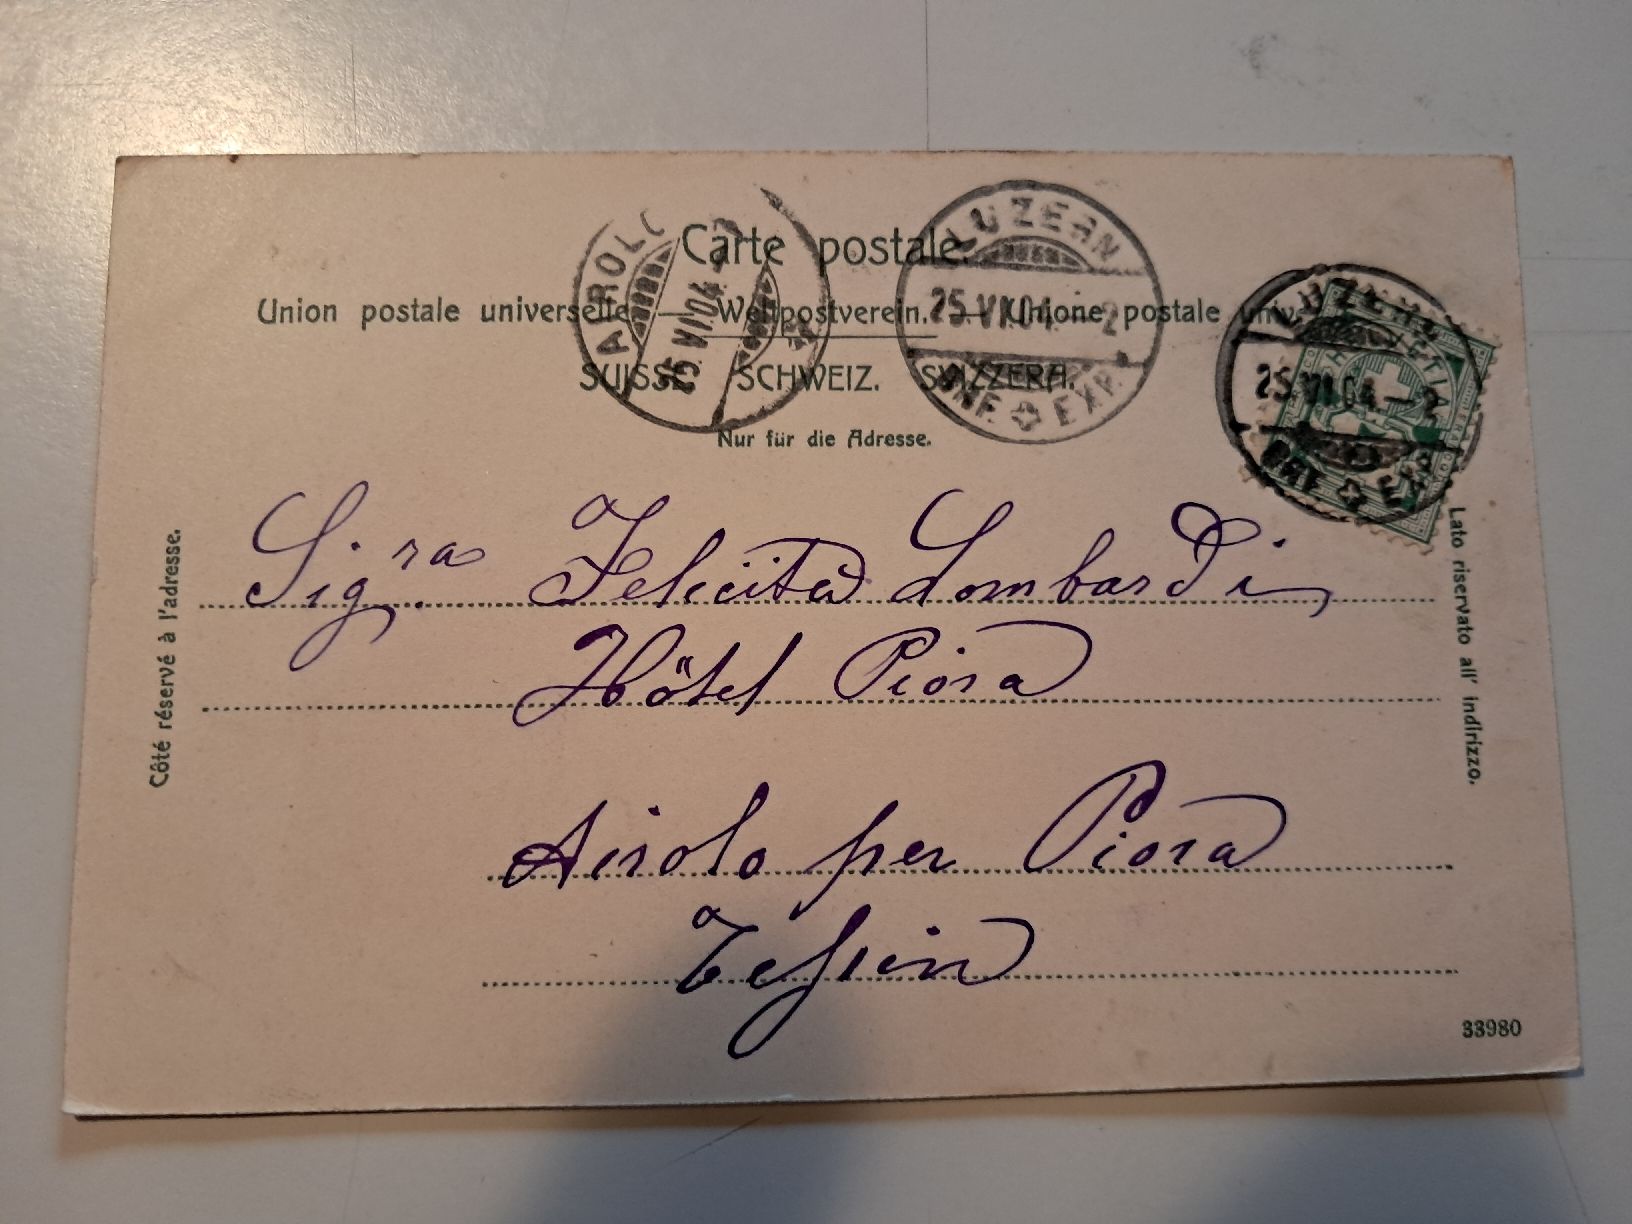 Carte postale.
Union postale universelle. — Weltpostverein. — Unione postale
SUISSE. SCHWEIZ. SVIZZERA.
Nur für die Adresse.
AIROLO
25.VI.04
LUZERN
25.VI.04.–2
BRF. EXP.
LUZERN
25.VI.04.–2
BRF. EXP.
HELVETIA
FRANCO
Côté réservé à l'adresse.
Lato riservato all' indirizzo.
Sig.ra Felicita Lombardi,
Hôtel Piora
Airolo per Piora
Tessin
33980